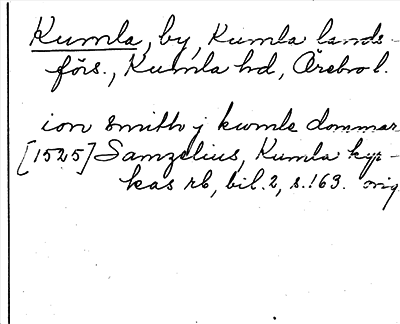 Kumla, by, Kumla lands-
förs., Kumla hd, Örebro l.
ion smith j kwmle dommar
[1525] Samzelius, Kumla kyr-
kas rb, bil. 2, s. 169. orig.